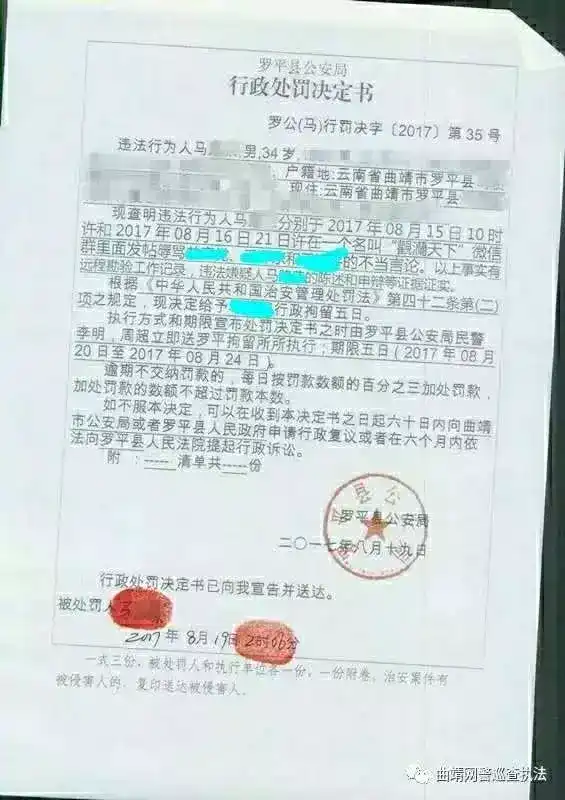 罗平县公安局
行政处罚决定书
罗公(马)行罚决字〔2017〕第35号
违法行为人马 男,34岁,
户籍地:云南省曲靖市罗平县
现住:云南省曲靖市罗平县
现查明违法行为人马 分别于2017年08月15日10时
许和2017年08月16日21日许在一个名叫“觀瀾天下”微信
群里面发帖辱骂 和 的不当言论。以上事实有
远程勘验工作记录,违法嫌疑人马 的陈述和申辩等证据证实。
根据《中华人民共和国治安管理处罚法》第四十二条第(二)
项之规定,现决定给予 行政拘留五日。
执行方式和期限宣布处罚决定书之时由罗平县公安局民警
李明,周超立即送罗平拘留所所执行;期限五日(2017年08月
20日至2017年08月24日)。
逾期不交纳罚款的,每日按罚款数额的百分之三加处罚款,
加处罚款的数额不超过罚款本数。
如不服本决定,可以在收到本决定书之日起六十日内向曲靖
市公安局或者罗平县人民政府申请行政复议或者在六个月内依
法向罗平县人民法院提起行政诉讼。
附:-----清单共-----份
罗平县公安局
二〇一七年八月十九日
行政处罚决定书已向我宣告并送达。
被处罚人马
2017年8月19日21时06分
一式三份,被处罚人和执行单位各一份,一份附卷。治安案件有
被侵害人的,复印送达被侵害人。
曲靖网警巡查执法